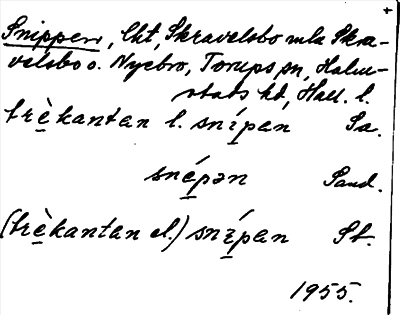 Snippen, lht, Skravelsbo mla Skra-
velsbo o. Nyebro, Torups sn, Halm-
stads hd, Hall. l.
trèkantan l. snípan Sa.
snépən Sand.
(trèkantan el.) snípan St.
1955.